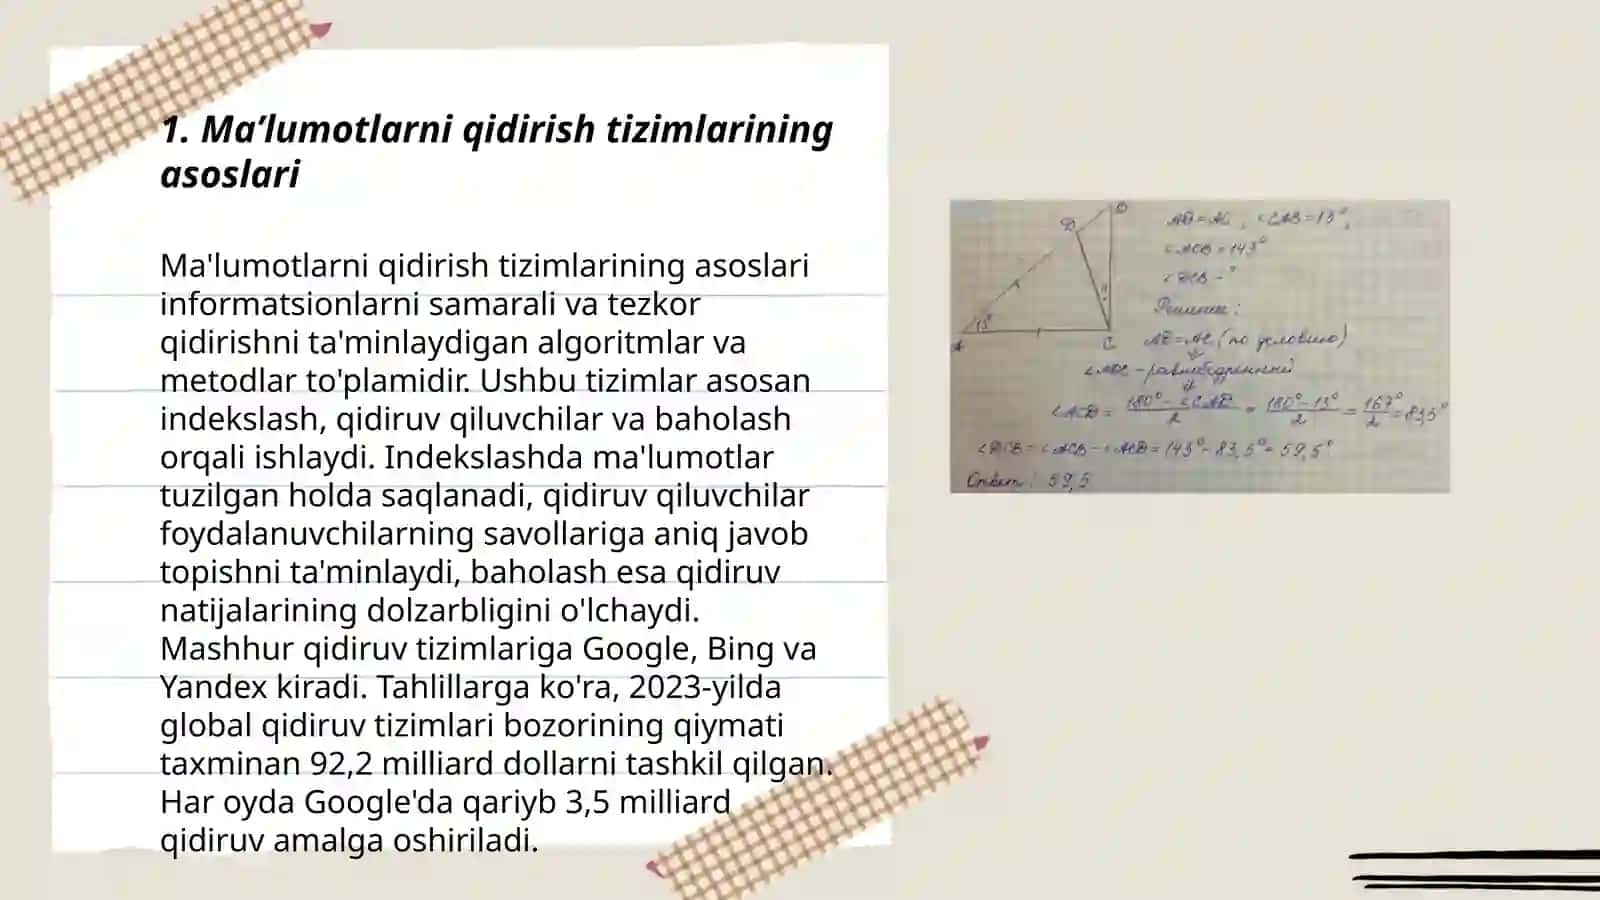 1. Ma’lumotlarni qidirish tizimlarining
asoslari
Ma'lumotlarni qidirish tizimlarining asoslari
informatsionlarni samarali va tezkor
qidirishni ta'minlaydigan algoritmlar va
metodlar to'plamidir. Ushbu tizimlar asosan
indekslash, qidiruv qiluvchilar va baholash
orqali ishlaydi. Indekslashda ma'lumotlar
tuzilgan holda saqlanadi, qidiruv qiluvchilar
foydalanuvchilarning savollariga aniq javob
topishni ta'minlaydi, baholash esa qidiruv
natijalarining dolzarbligini o'lchaydi.
Mashhur qidiruv tizimlariga Google, Bing va
Yandex kiradi. Tahlillarga ko'ra, 2023-yilda
global qidiruv tizimlari bozorining qiymati
taxminan 92,2 milliard dollarni tashkil qilgan.
Har oyda Google'da qariyb 3,5 milliard
qidiruv amalga oshiriladi.
D
13°
A
C
AD = AC, ∠CAB = 13°,
∠ACB = 143°
∠DCB - ?
Решение:
AD = AC (по условию)
- равнобедренный
∠ACD = 180° - ∠CAD / 2 = 180° - 13° / 2 = 167° / 2 = 83,5°
∠DCB = ∠ACB - ∠ACD = 143° - 83,5° = 59,5°
Ответ: 59,5